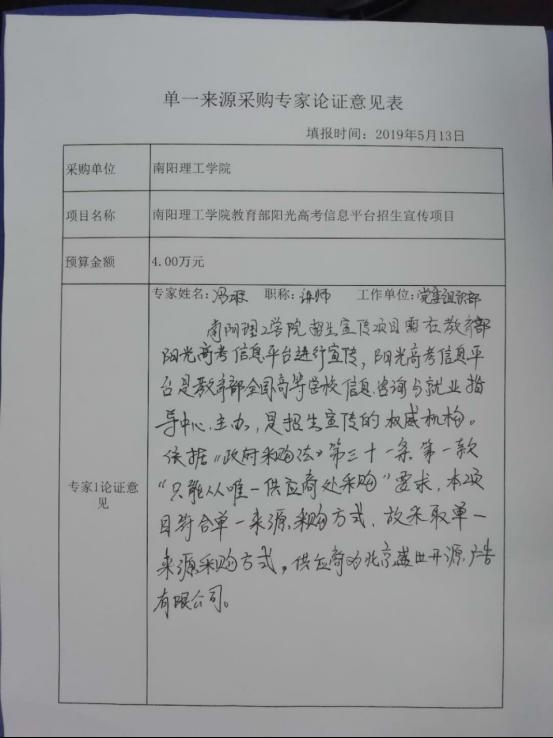 单一来源采购专家论证意见表
填报时间：2019年5月13日
采购单位 南阳理工学院
项目名称 南阳理工学院教育部阳光高考信息平台招生宣传项目
预算金额 4.00万元
专家姓名：冯 职称：讲师 工作单位：党委组织部
南阳理工学院招生宣传项目需在教育部
阳光高考信息平台进行宣传，阳光高考信息平
台是教育部全国高等学校信息咨询与就业指
导中心主办，是招生宣传的权威机构。
依据《政府采购法》第三十一条第一款
“只能从唯一供应商处采购”要求，本项
目符合单一来源采购方式，故采取单一
来源采购方式，供应商为北京盛世开源广告
有限公司。
专家1论证意
见